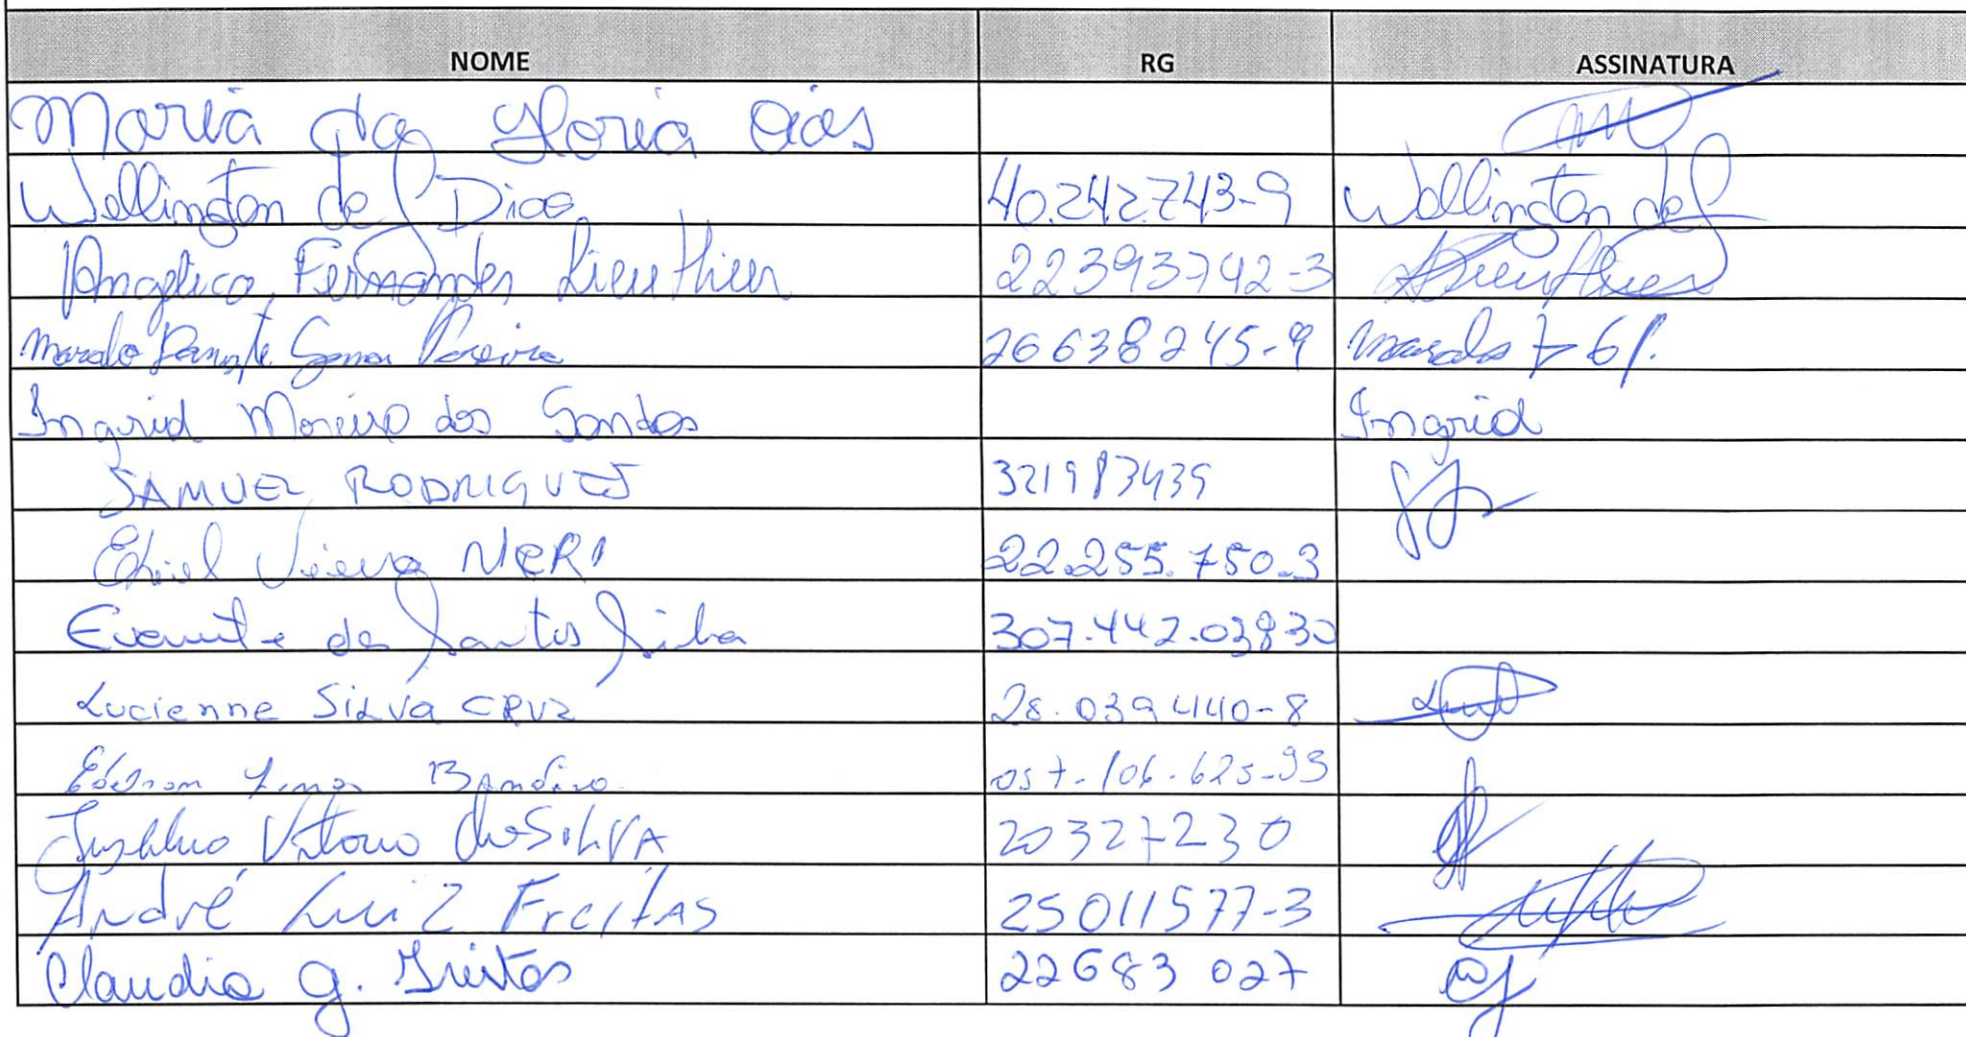 NOME RG ASSINATURA
Maria da Gloria Dias
Wellington de J Dias 40.242.743-9 Wellington de J
Angelica Fernandes Lieuthier 22393742-3
Pereira 26638245-9
Ingrid Moreira dos Santos Ingrid
SAMUEL RODRIGUES 321983439
Vieira NERI 22.255.750.3
dos Santos Silva 307.442.03830
Lucienne Silva CRUZ 28.039440-8
057.106.625-93
Vitorio da SILVA 20327230
André Luiz Freitas 25011577-3
Claudia G. Freitas 22683 027